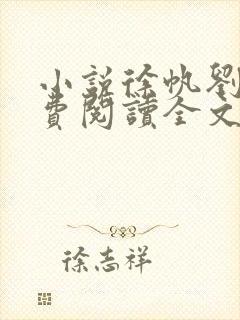 小說徐帆劉
費閱讀全文
徐志祥